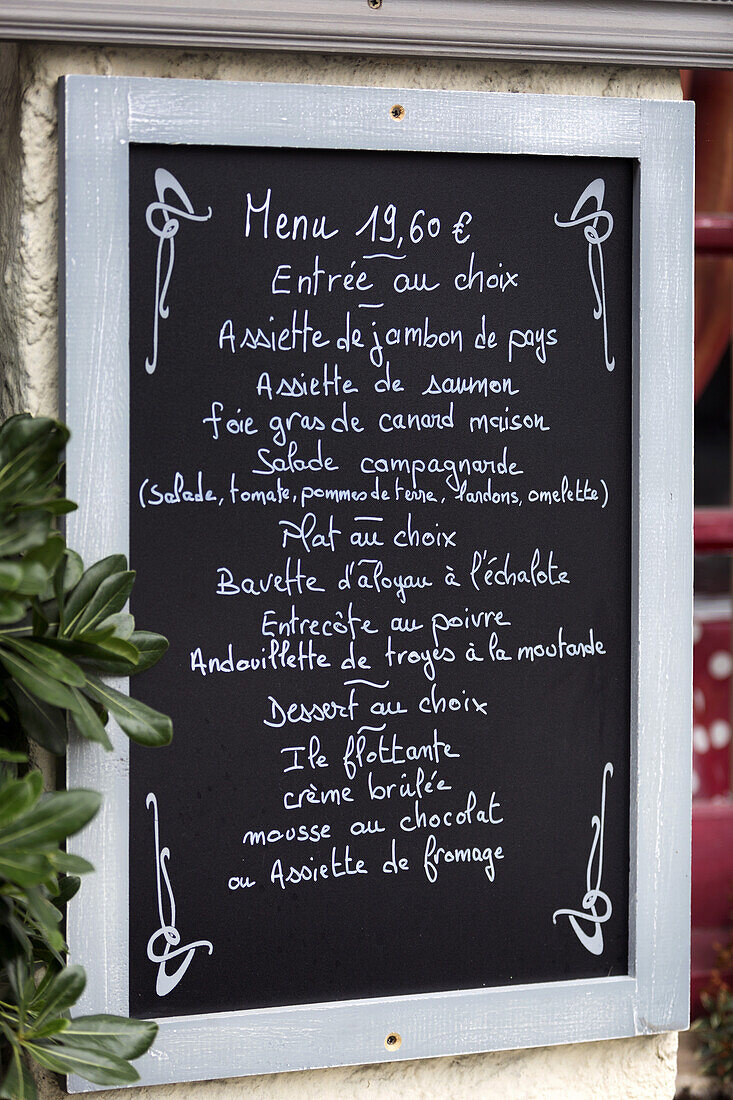 Menu 19,60 €
Entrée au choix
Assiette de jambon de pays
Assiette de saumon
foie gras de canard maison
Salade campagnarde
(Salade, tomate, pommes de terre, lardons, omelette)
Plat au choix
Bavette d'aloyau à l'échalote
Entrecôte au poivre
Andouillette de troyes à la moutarde
Dessert au choix
Ile flottante
crème brûlée
mousse au chocolat
ou Assiette de fromage